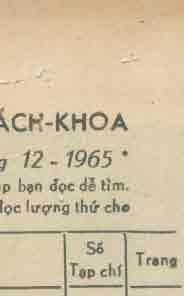 ÁCH-KHOA
g 12 - 1965 *
p bạn đọc dễ tìm.
lọc lượng thứ cho
Số
Tạp chí
Trang